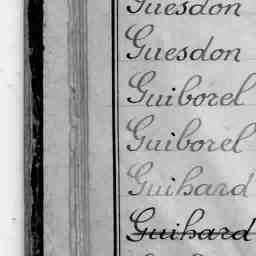 Guesdon
Guesdon
Guiborel
Guiborel
Guihard
Guihard